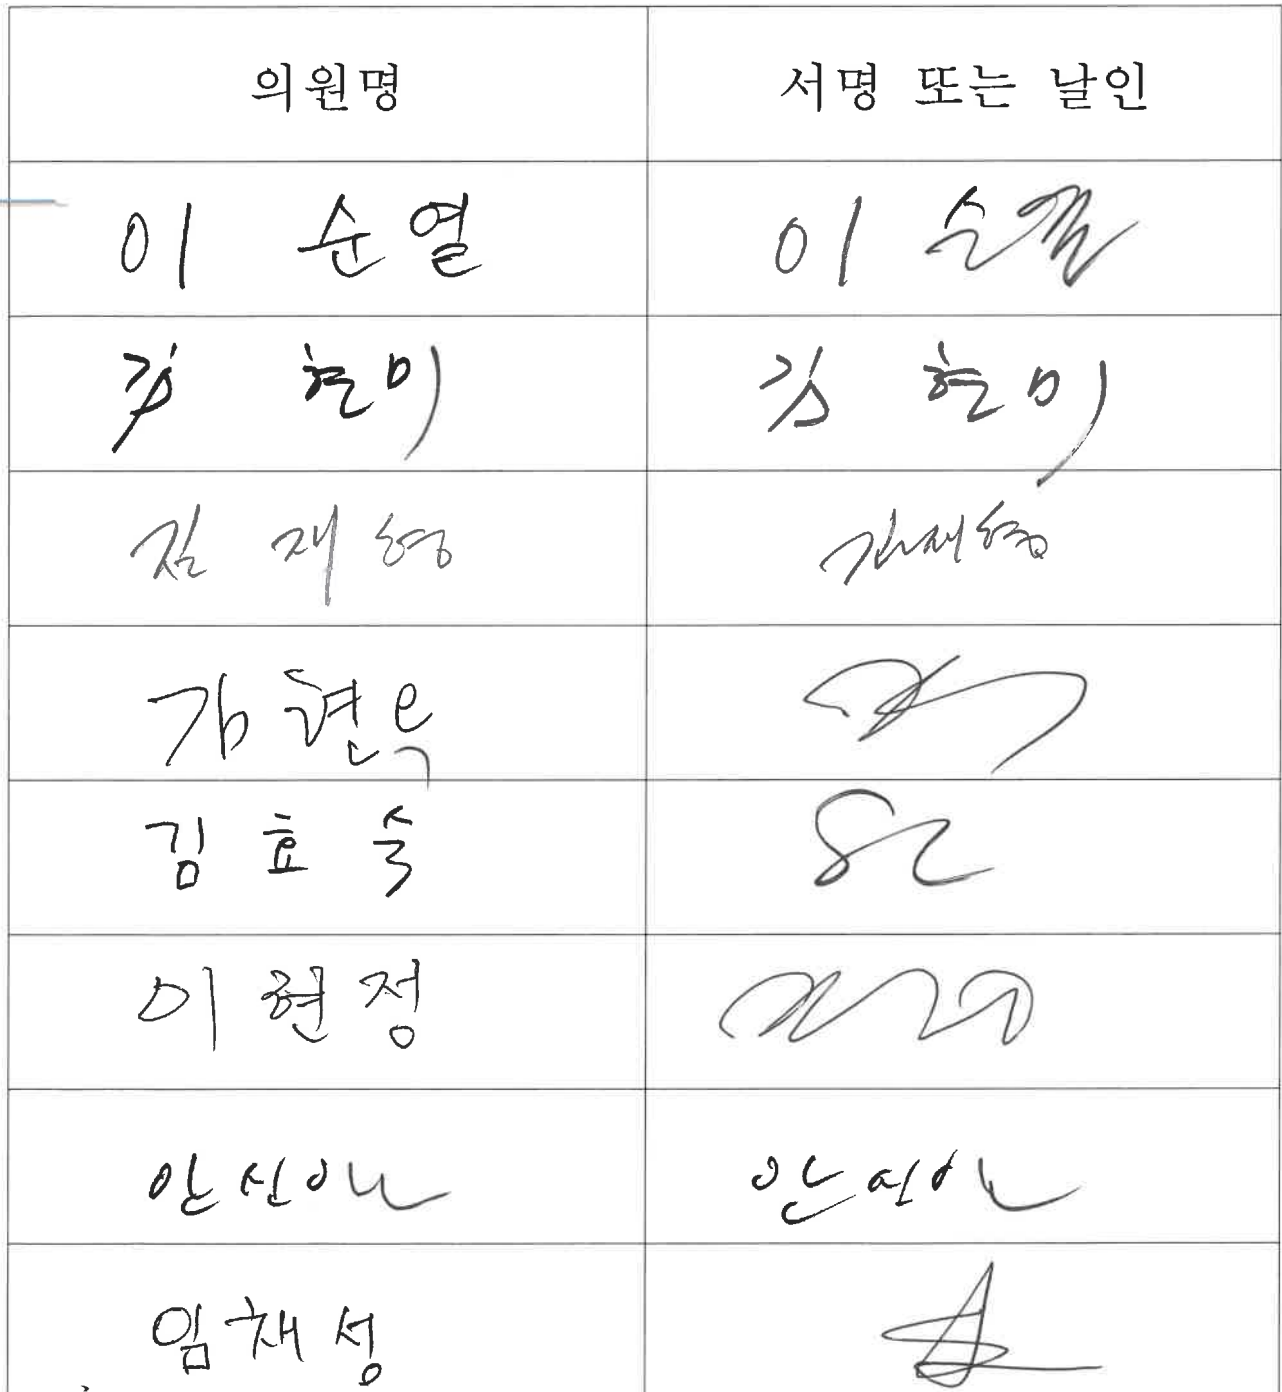 의원명 서명 또는 날인
이 순열 이 순열
김 현미 김 현미
김 재형 김재형
김현옥
김효숙
이현정
안신일 안신일
임채성